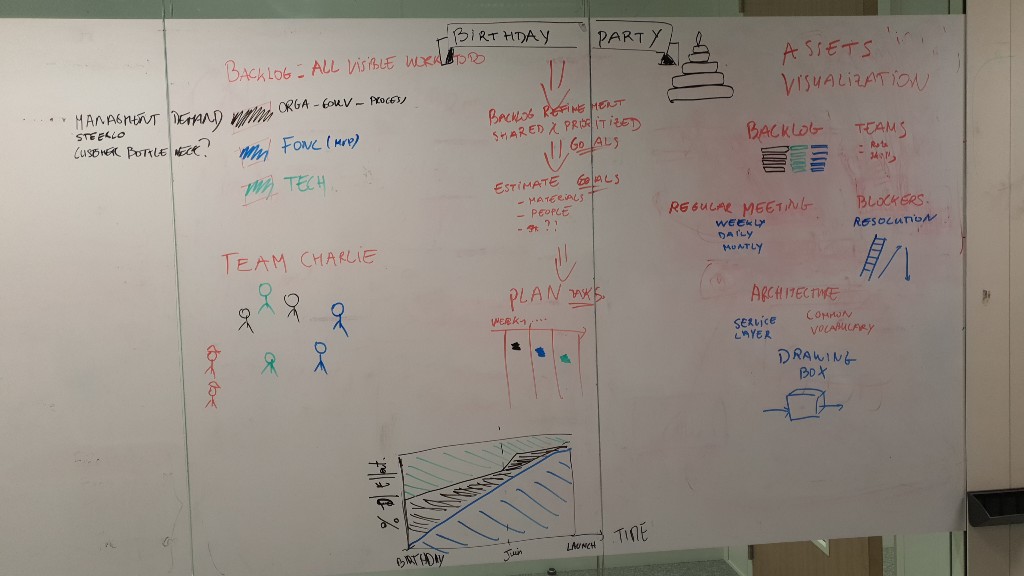 BIRTHDAY PARTY
BACKLOG = ALL VISIBLE WORK TODO
MANAGMENT DEMAND
STEERCO
CUSTOMER BOTTLE NECK?
ORGA - GOUV - PROCESS
FONC (MVP)
TECH
TEAM CHARLIE
BACKLOG REFINEMENT
SHARED & PRIORITIZED
GOALS
ESTIMATE GOALS
- MATERIALS
- PEOPLE
- ??
PLAN TASKS
WEEK 1, ...
%
BIRTHDAY
Juin
LAUNCH
TIME
ASSETS
VISUALIZATION
BACKLOG
TEAMS
= Role
SKILLS
REGULAR MEETING
WEEKLY
DAILY
MONTLY
BLOCKERS
RESOLUTION
ARCHITECTURE
SERVICE
LAYER
COMMON
VOCABULARY
DRAWING
BOX